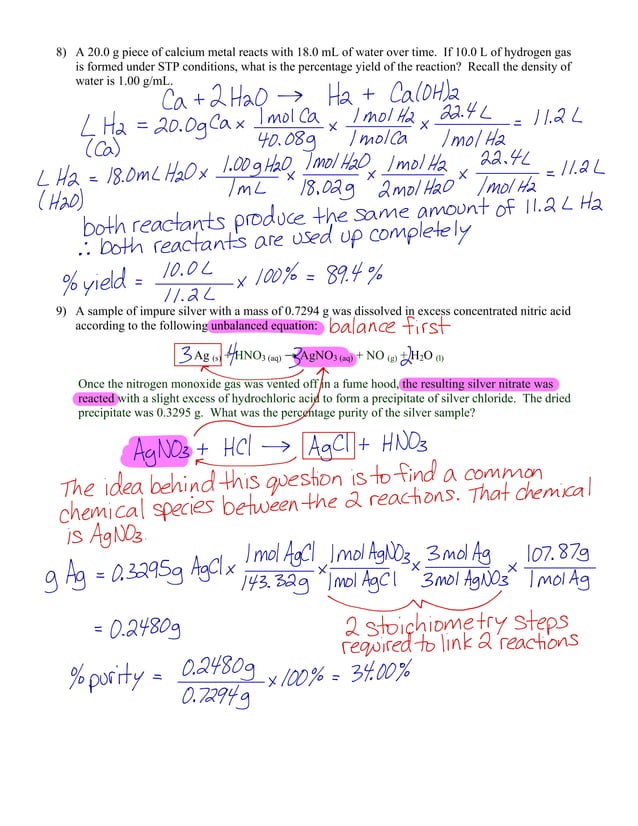 8) A 20.0 g piece of calcium metal reacts with 18.0 mL of water over time. If 10.0 L of hydrogen gas
is formed under STP conditions, what is the percentage yield of the reaction? Recall the density of
water is 1.00 g/mL.
Ca + 2 H2O → H2 + Ca(OH)2
L H2 = 20.0g Ca × 1 mol Ca / 40.08g × 1 mol H2 / 1 mol Ca × 22.4 L / 1 mol H2 = 11.2 L
(Ca)
L H2 = 18.0mL H2O × 1.00 g H2O / 1 mL × 1 mol H2O / 18.02g × 1 mol H2 / 2 mol H2O × 22.4 L / 1 mol H2 = 11.2 L
(H2O)
both reactants produce the same amount of 11.2 L H2
∴ both reactants are used up completely
% yield = 10.0 L / 11.2 L × 100% = 89.4 %
9) A sample of impure silver with a mass of 0.7294 g was dissolved in excess concentrated nitric acid
according to the following unbalanced equation: balance first
3 Ag (s) + 4 HNO3 (aq) → 3 AgNO3 (aq) + NO (g) + 2 H2O (l)
Once the nitrogen monoxide gas was vented off in a fume hood, the resulting silver nitrate was
reacted with a slight excess of hydrochloric acid to form a precipitate of silver chloride. The dried
precipitate was 0.3295 g. What was the percentage purity of the silver sample?
AgNO3 + HCl → AgCl + HNO3
The idea behind this question is to find a common
chemical species between the 2 reactions. That chemical
is AgNO3.
g Ag = 0.3295g AgCl × 1 mol AgCl / 143.32g × 1 mol AgNO3 / 1 mol AgCl × 3 mol Ag / 3 mol AgNO3 × 107.87g / 1 mol Ag
= 0.2480g
2 stoichiometry steps
required to link 2 reactions
% purity = 0.2480g / 0.7294g × 100% = 34.00%